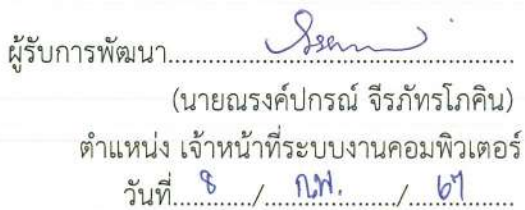 ผู้รับการพัฒนา........................................................
(นายณรงค์ปกรณ์ จีรภัทรโภคิน)
ตำแหน่ง เจ้าหน้าที่ระบบงานคอมพิวเตอร์
วันที่.....8...../.....ก.พ....../.....67.....